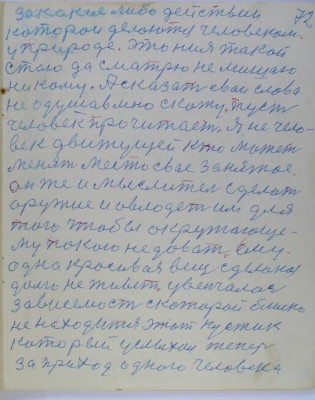 за какие либо действии 72
которои делоются человеком
у природе. Это ния такой
стою да сматрю не мишаю
никому. А сказат свои слова
не одушавлно скожу. пуст
человек прочитает. Я не чело-
век движущей кто может
менят место свае занятое.
он же и мыслител сделат
оружие и овлодет им для
того чтобы окружающе-
му такого не доват. Ему.
одна красивая вещ сделана
долго не живет увенчалас
зависемост с которой близко
не находится этот кустик
который услихал тепер
за приход одного человека